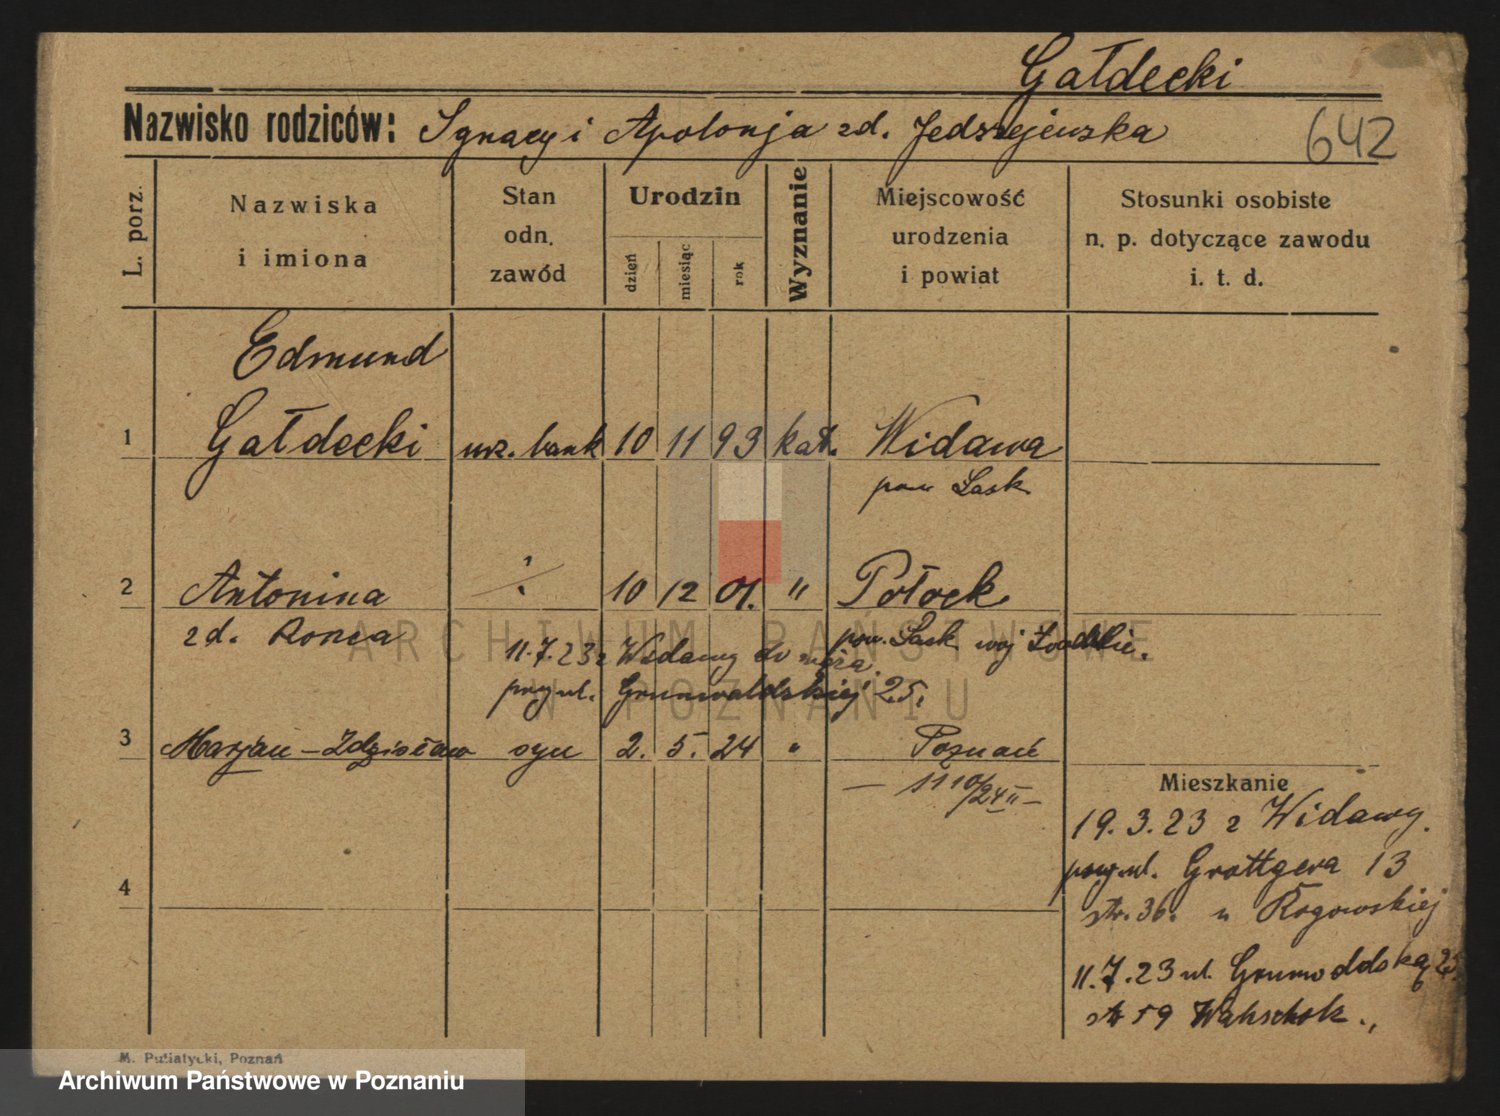 Gałdecki
Nazwisko rodziców: Ignacy i Apolonja zd. Jedrzejewska
642
L. porz.
Nazwiska
i imiona
Stan
odn.
zawód
Urodzin
dzień
miesiąc
rok
Wyznanie
Miejscowość
urodzenia
i powiat
Stosunki osobiste
n. p. dotyczące zawodu
i. t. d.
Edmund
1 Gałdecki urz. bank 10 11 93 kat. Widawa
pow Łask
2 Antonina ÷ 10 12 01. " Potock
zd. pow. Łask woj Łódzkie.
11.7.23 z Widawy do męża
przy ul. Grunwaldzkiej 25.
3 Marjan - Zdzisław syn 2. 5. 24 " Poznań
Mieszkanie
19.3.23 z Widawy
przy ul. Grottgera 13
str. 36. u Rogowskiej
4
11.7.23 ul.
str 59
M. Putiatycki, Poznań
ARCHIWUM PAŃSTWOWE
W POZNANIU
Archiwum Państwowe w Poznaniu